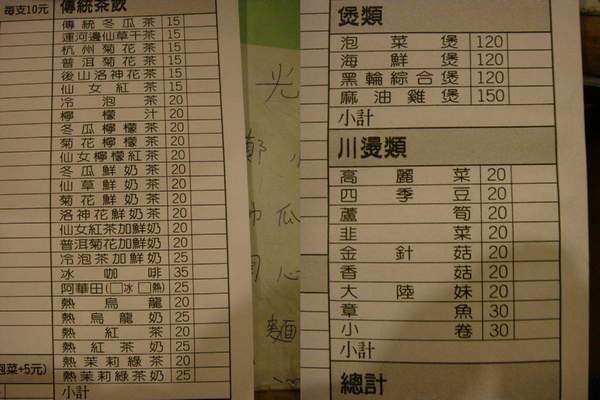 每支10元
傳統茶飲
傳統冬瓜茶 15
運河邊仙草干茶 15
杭州菊花茶 15
普洱菊花茶 15
後山洛神花茶 15
仙女紅茶 15
冷泡茶 20
檸檬汁 20
冬瓜檸檬茶 20
菊花檸檬茶 20
仙女檸檬紅茶 20
冬瓜鮮奶茶 20
仙草鮮奶茶 20
菊花鮮奶茶 20
洛神花鮮奶茶 20
仙女紅茶加鮮奶 20
普洱菊花加鮮奶 20
冷泡茶加鮮奶 25
冰咖啡 35
阿華田(□冰 □熱) 25
熱烏龍 20
熱烏龍奶 25
熱紅茶 20
熱紅茶奶 25
熱茉莉綠茶 20
熱茉莉綠茶奶 25
小計
泡菜+5元)
光
瓜
心
麵
煲類
泡菜煲 120
海鮮煲 120
黑輪綜合煲 120
麻油雞煲 150
小計
川燙類
高麗菜 20
四季豆 20
蘆筍 20
韭菜 20
金針菇 20
香菇 20
大陸妹 20
章魚 30
小卷 30
小計
總計